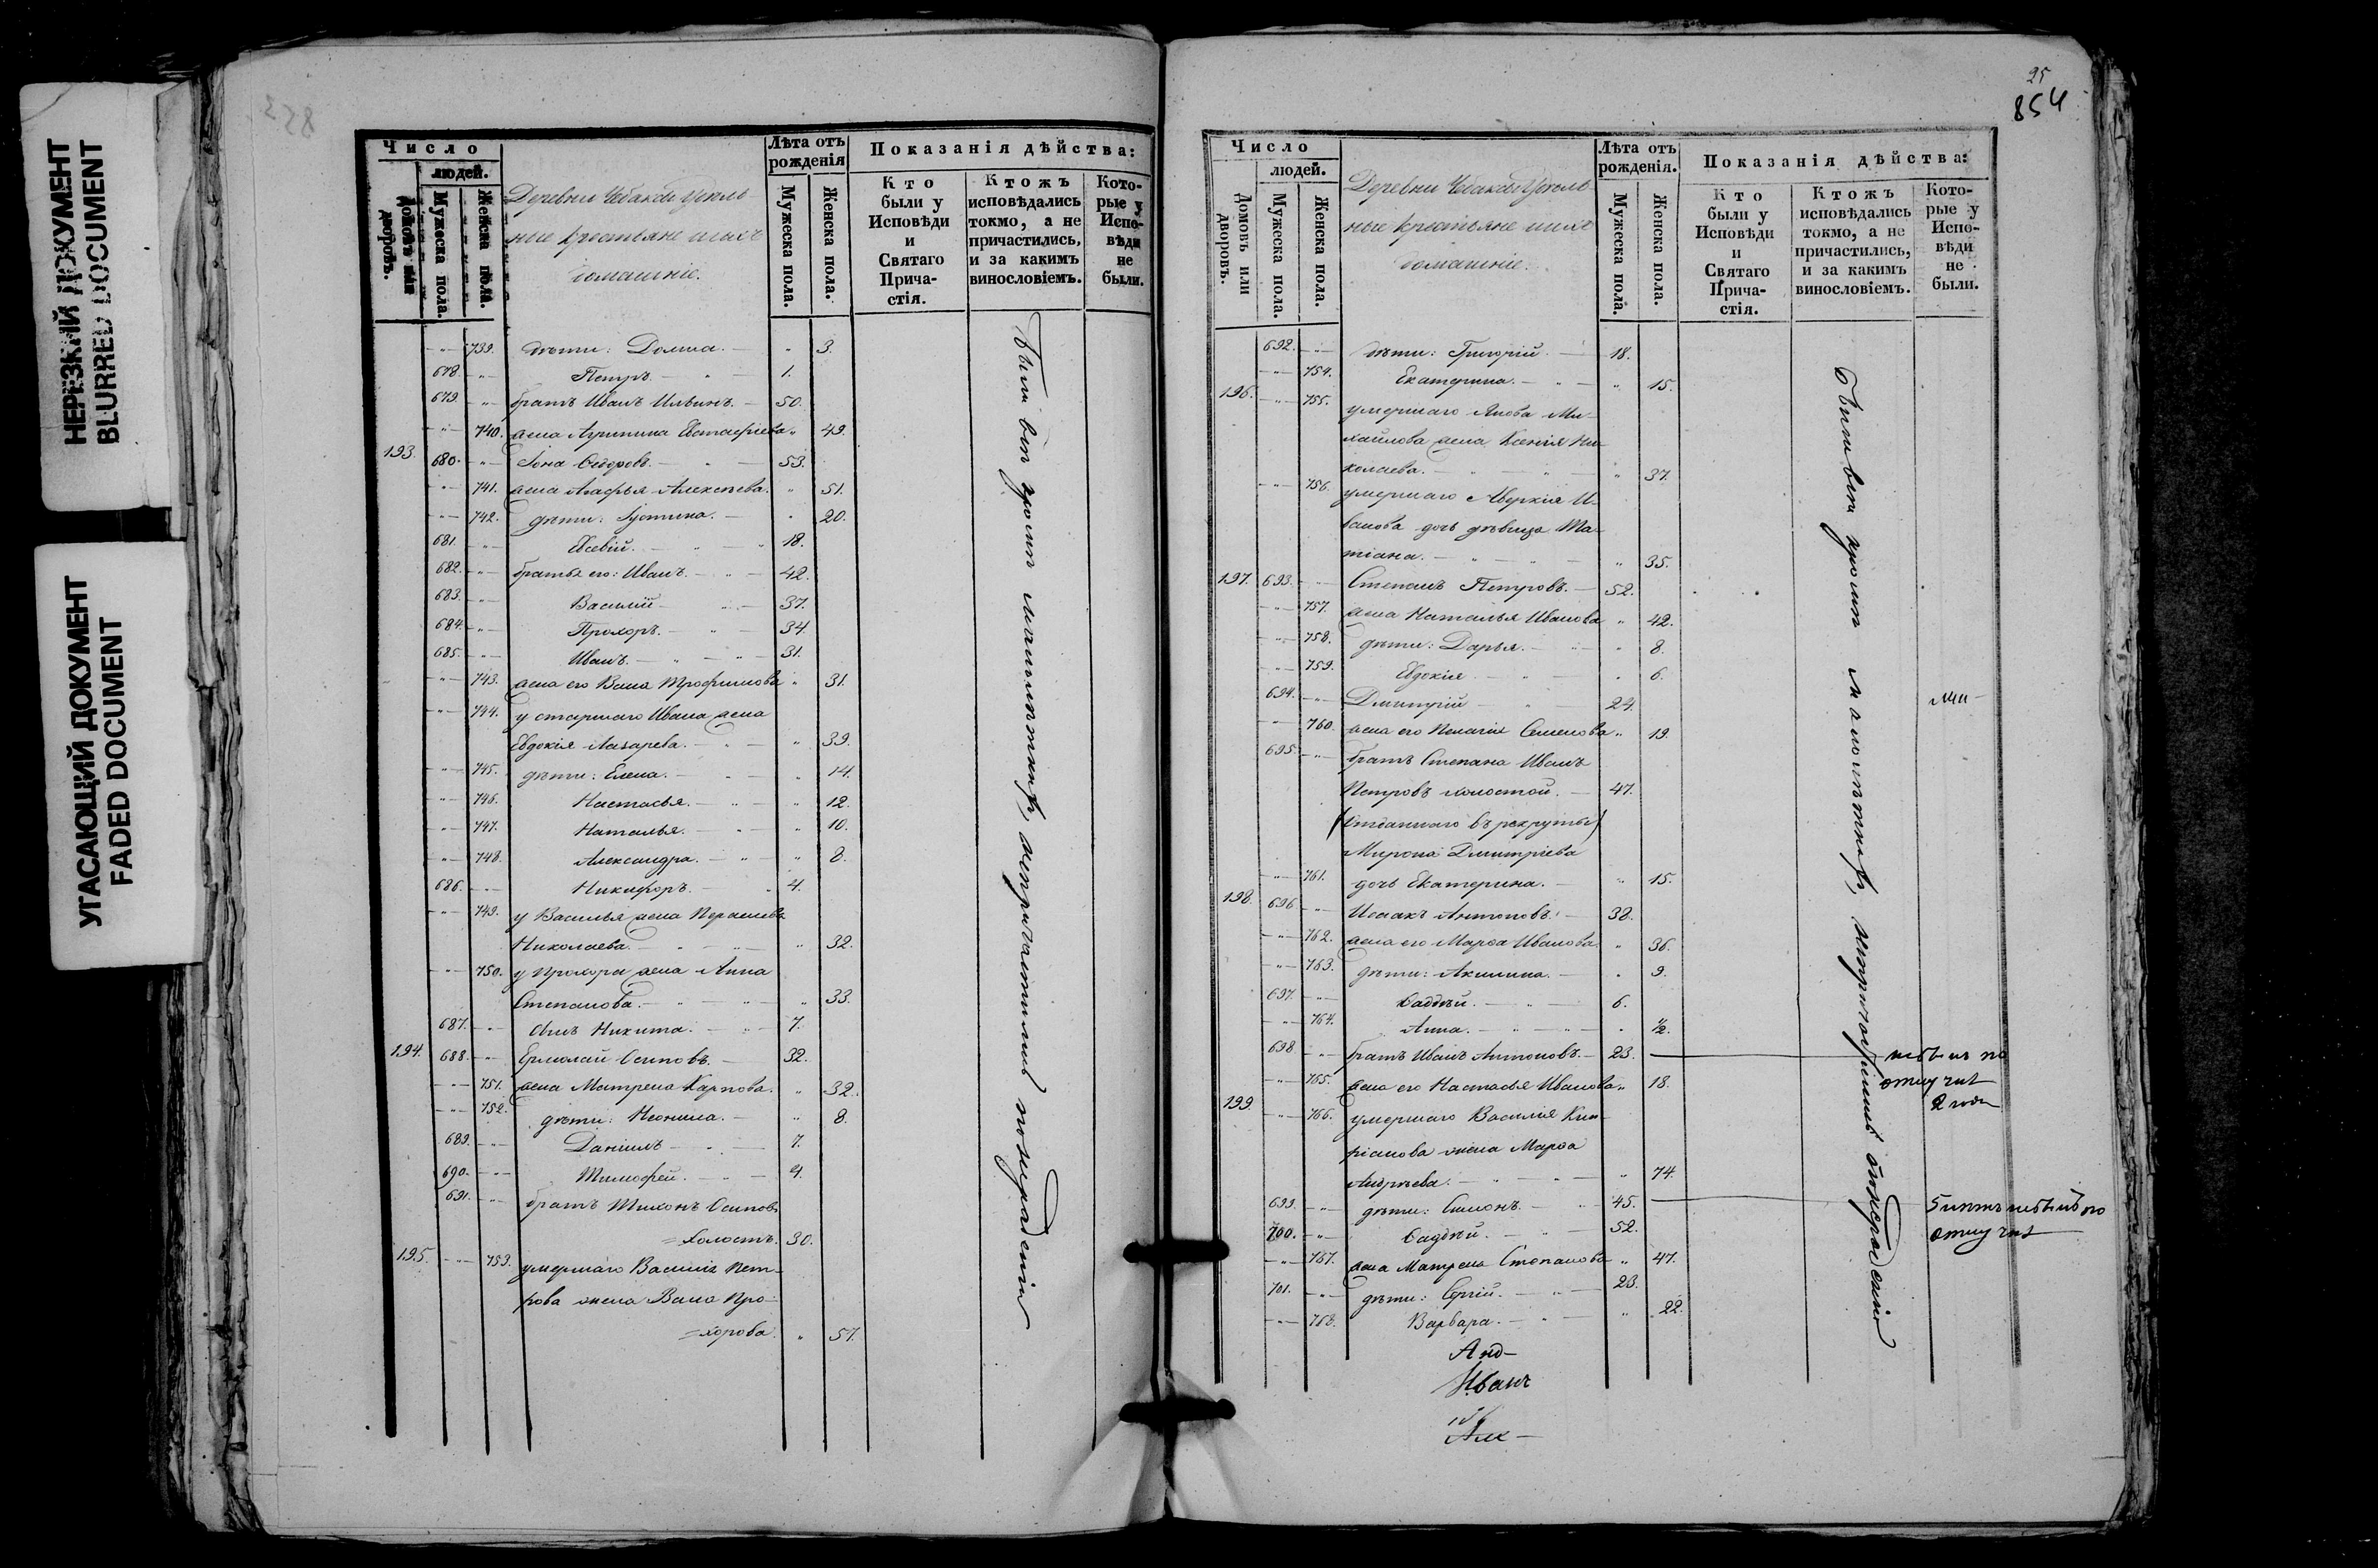 НЕРЕЗКИЙ ДОКУМЕНТ
BLURRED DOCUMENT
УГАСАЮЩИЙ ДОКУМЕНТ
FADED DOCUMENT
Число
людей.
домовъ или дворовъ.
Мужеска пола.
Женска пола.
Деревни Чебакси Удѣль
ные крестьяне ихъ
домашніе.
Лѣта отъ рожденія
Мужеска пола.
Женска пола.
Показанія дѣйства:
Кто были у Исповѣди и Святаго Прича-стія.
Ктожъ исповѣдались токмо, а не причастились, и за какимъ винословіемъ.
Кото-рые у Испо-вѣди не были.
739. дѣти: Домна. 3.
678. Петръ. 1.
679. братъ Иванъ Ильинъ. 50.
740. жена Агрипина Евстафіева 49.
193. 680. Іона Ѳедоровъ. 53.
741. жена Агафья Алексѣева. 51.
742. дѣти: Іустина. 20.
681. Евсевій. 18.
682. братья его: Иванъ. 42.
683. Василій 37.
684. Прохоръ. 34.
685. Иванъ. 31.
743. жена его Васса Трофимова 31.
744. у старшаго Ивана жена
Евдокія Лазарева. 39.
745. дѣти: Елена. 14.
746. Настасья. 12.
747. Наталья. 10.
748. Александра. 8.
686. Никифоръ. 4.
749. у Василья жена
Николаева. 32.
750. у Прохора жена Анна
Степанова. 33.
687. сынъ Никита. 7.
194. 688. Ермолай Осиповъ. 32.
751. жена Матрена Карпова. 32.
752. дѣти: Неонила. 8.
689. Даніилъ 7.
690. Тимофей. 4.
691. братъ Тихонъ Осиповъ
=холостъ. 30.
195. 753. умершаго Василія Пет-
рова жена Васса Про-
=хорова. 57.
25
854
Число
людей.
Домовъ или дворовъ.
Мужеска пола.
Женска пола.
Деревни Чебакси Удѣль
ные крестьяне ихъ
домашніе.
Лѣта отъ рожденія.
Мужеска пола.
Женска пола.
Показанія дѣйства:
Кто были у Исповѣди и Святаго Прича-стія.
Ктожъ исповѣдались токмо, а не причастились, и за какимъ винословіемъ.
Кото-рые у Испо-вѣди не были.
692. дѣти: Григорій. 18.
754. Екатерина. 15.
196. 755. умершаго Якова Ми-
хайлова жена Ксенія Ни-
колаева. 37.
756. умершаго Аверкія И-
ванова дочь дѣвица Та-
тіана. 35.
197. 693. Степанъ Петровъ. 52.
757. жена Наталья Иванова 42.
758. дѣти: Дарья. 8.
759. Евдокія 6.
694. Димитрій 24.
760. жена его Пелагія Семенова 19.
695. братъ Степана Иванъ
Петровъ холостой. 47.
(отданнаго въ рекруты)
Мирона Димитріева
761. дочь Екатерина. 15.
198. 696. Исаакъ Антоновъ. 38.
762. жена его Марѳа Иванова. 36.
763. дѣти: Акилина. 9.
697. Ѳаддѣй. 6.
764. Анна. ½.
698. братъ Иванъ Антоновъ. 23. небылъ по
отлучкѣ
2 года
765. жена его Настасья Иванова 18.
199. 766. умершаго Василія Кип-
ріанова жена Марѳа
Андрѣева. 74.
699. дѣти: Симонъ. 45. 5 лѣтъ небылъ по
отлучкѣ
700. Ѳаддѣй. 52.
767. жена Матрена Степанова 47.
701. дѣти: Сергій. 23.
768. Варвара. 22.
Анд-
Иванъ